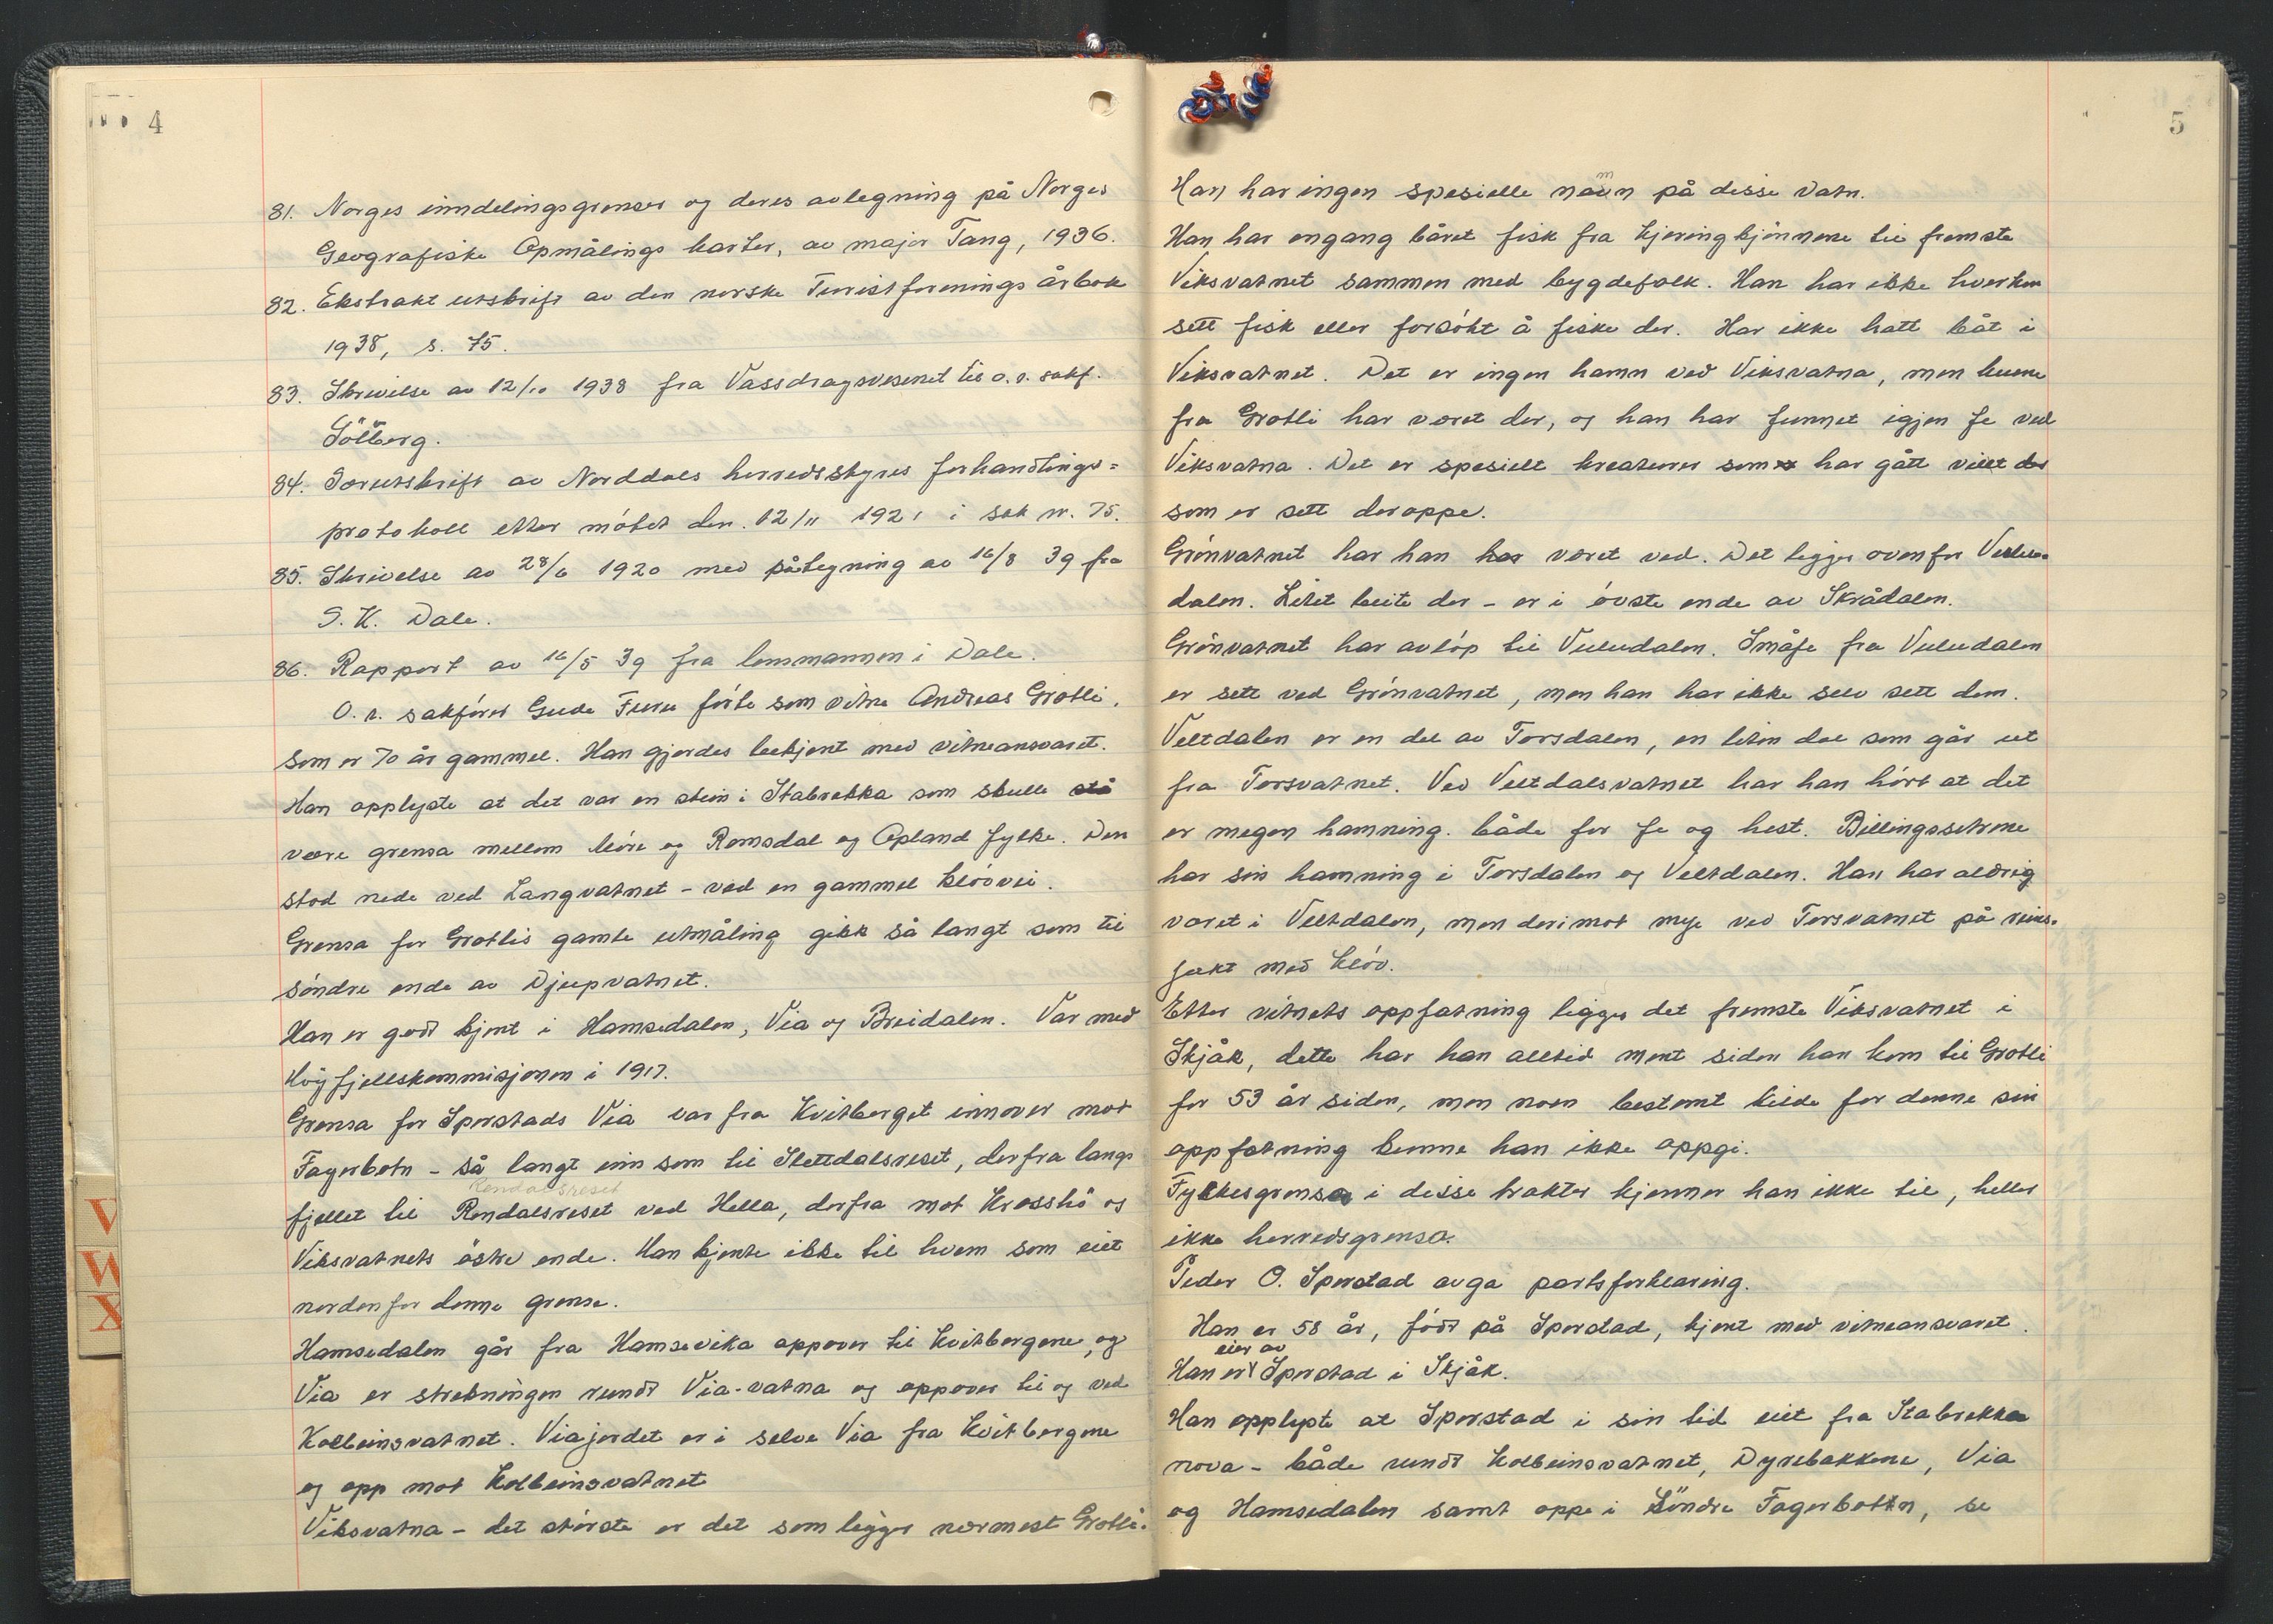 4
81. Norges inndelingsgrenser og deres avlegning på Norges
Geografiske Opmålings karter, av major Tang, 1936.
82. Ekstrakt utskrift av den norske Turistforenings årbok
1938, s. 75.
83. Skrivelse av 12/10 1938 fra Vassdragsvesenet til o.r. sakf.
Sölberg.
84. Særutskrift av Norddals herredsstyres forhandlings=
protokoll etter mötet den. 12/11 1921 i sak nr. 75.
85. Skrivelse av 28/6 1920 med påtegning av 16/8 39 fra
S. K. Dale.
86. Rapport av 16/5 39 fra lensmannen i Dale.
O. r. sakförer Gude Furu förte som vitne Andreas Grotli,
som er 70 år gammel. Han gjordes bekjent med vitneansvaret.
Han opplyste at det var en stein i Stabrekka som skulle stå
være grensa mellem Möre og Romsdal og Opland fylke. Den
stod nede ved Langvatnet - ved en gammel klövvei.
Grensa for Grotlis gamle utmåling gikk så langt som til
söndre ende av Djupvatnet.
Han er godt kjent i Hamsedalen, Via og Breidalen. Var med
Höyfjellskommisjonen i 1917.
Grensa for Sperstads Via var fra Kvitberget innover mot
Fagerbotn - så langt inn som til Slettdalsreset, derfra langs
Rendalsreset
fjellet til Rendalsreset ved Hella, derfra mot Krosshö og
Viksvatnets östre ende. Han kjente ikke til hvem som eiet
nordenfor denne grense.
Hamsedalen går fra Hamsevika oppover til Kvitbergene, og
Via er strekningen rundt Via-vatna og oppover til og ved
Kolbeinsvatnet. Viajordet er i selve Via fra Kvitbergene
og opp mot Kolbeinsvatnet
Viksvatna - det störste er det som ligger nærmest Grotli.
5
Han har ingen spesielle navn på disse vatn.
Han har engang båret fisk fra Kjeringtjönnene til fremste
Viksvatnet sammen med bygdefolk. Han har ikke hverken
sett fisk eller forsökt å fiske der. Har ikke hatt båt i
Viksvatnet. Det er ingen hamn ved Viksvatna, men kuene
fra Grotli har været der, og han har funnet igjen fe ved
Viksvatna. Det er spesielt kreaturer som har gått villt der
som er sett deroppe.
Grönvatnet har han har været ved. Det ligger ovenfor Vulu=
dalen. Litet beite der - er i övste ende av Skrådalen.
Grönvatnet har avlöp til Vuludalen. Småfe fra Vuludalen
er sett ved Grönvatnet, men han har ikke selv sett dem.
Veltdalen er en del av Torsdalen, en liten dal som går ut
fra Torsvatnet. Ved Veltdalsvatnet har han hört at det
er megen hamning. både for fe og hest. Billingssetrene
har sin hamning i Torsdalen og Veltdalen. Han har aldrig
været i Veltdalen, men derimot mye ved Torsvatnet på reins=
jakt med klöv.
Etter vitnets oppfatning ligger det fremste Viksvatnet i
Skjåk, dette har han alltid ment siden han kom til Grotli
for 53 år siden, men noen bestemt kilde for denne sin
oppfatning kunne han ikke oppgi.
Fylkesgrensa i disse trakter kjenner han ikke til, heller
ikke herredsgrensa.
Peder O. Sperstad avga partsforklaring.
Han er 58 år, födt på Sperstad, kjent med vitneansvaret.
eier av
Han er Sperstad i Skjåk.
Han opplyste at Sperstad i sin tid eiet fra Stabrekka
nova - både rundt Kolbeinsvatnet, Dyrebakkene, Via
og Hamsedalen samt oppe i Söndre Fagerbotn, se
V
W
X